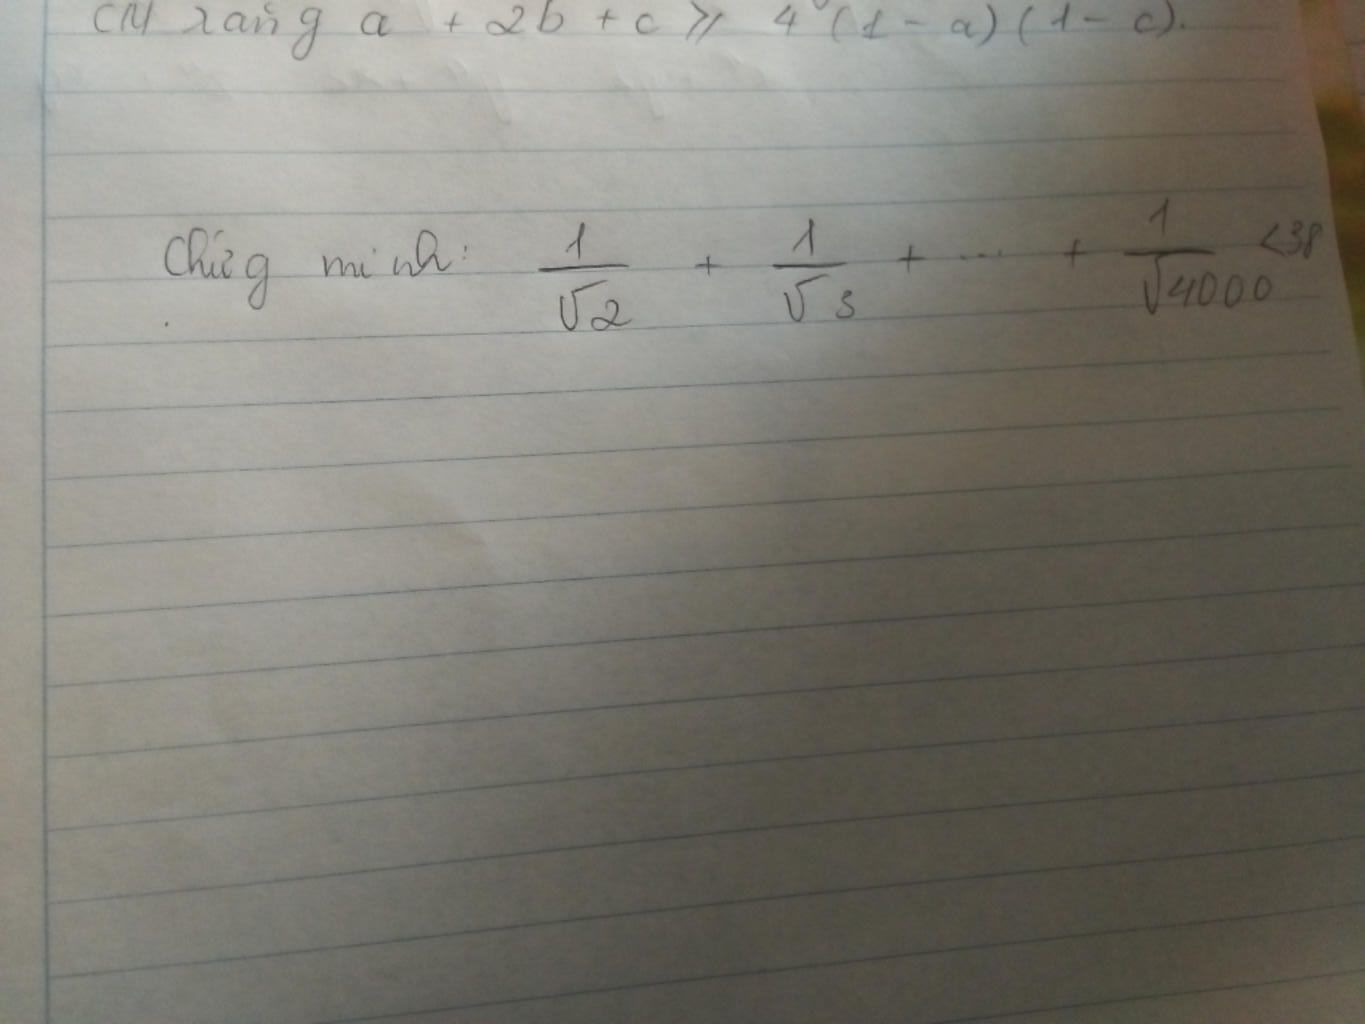 CM rằng a + 2b + c ≥ 4(1 - a)(1 - c).
Chứg minh: 1/√2 + 1/√3 + ... + 1/√4000 <38